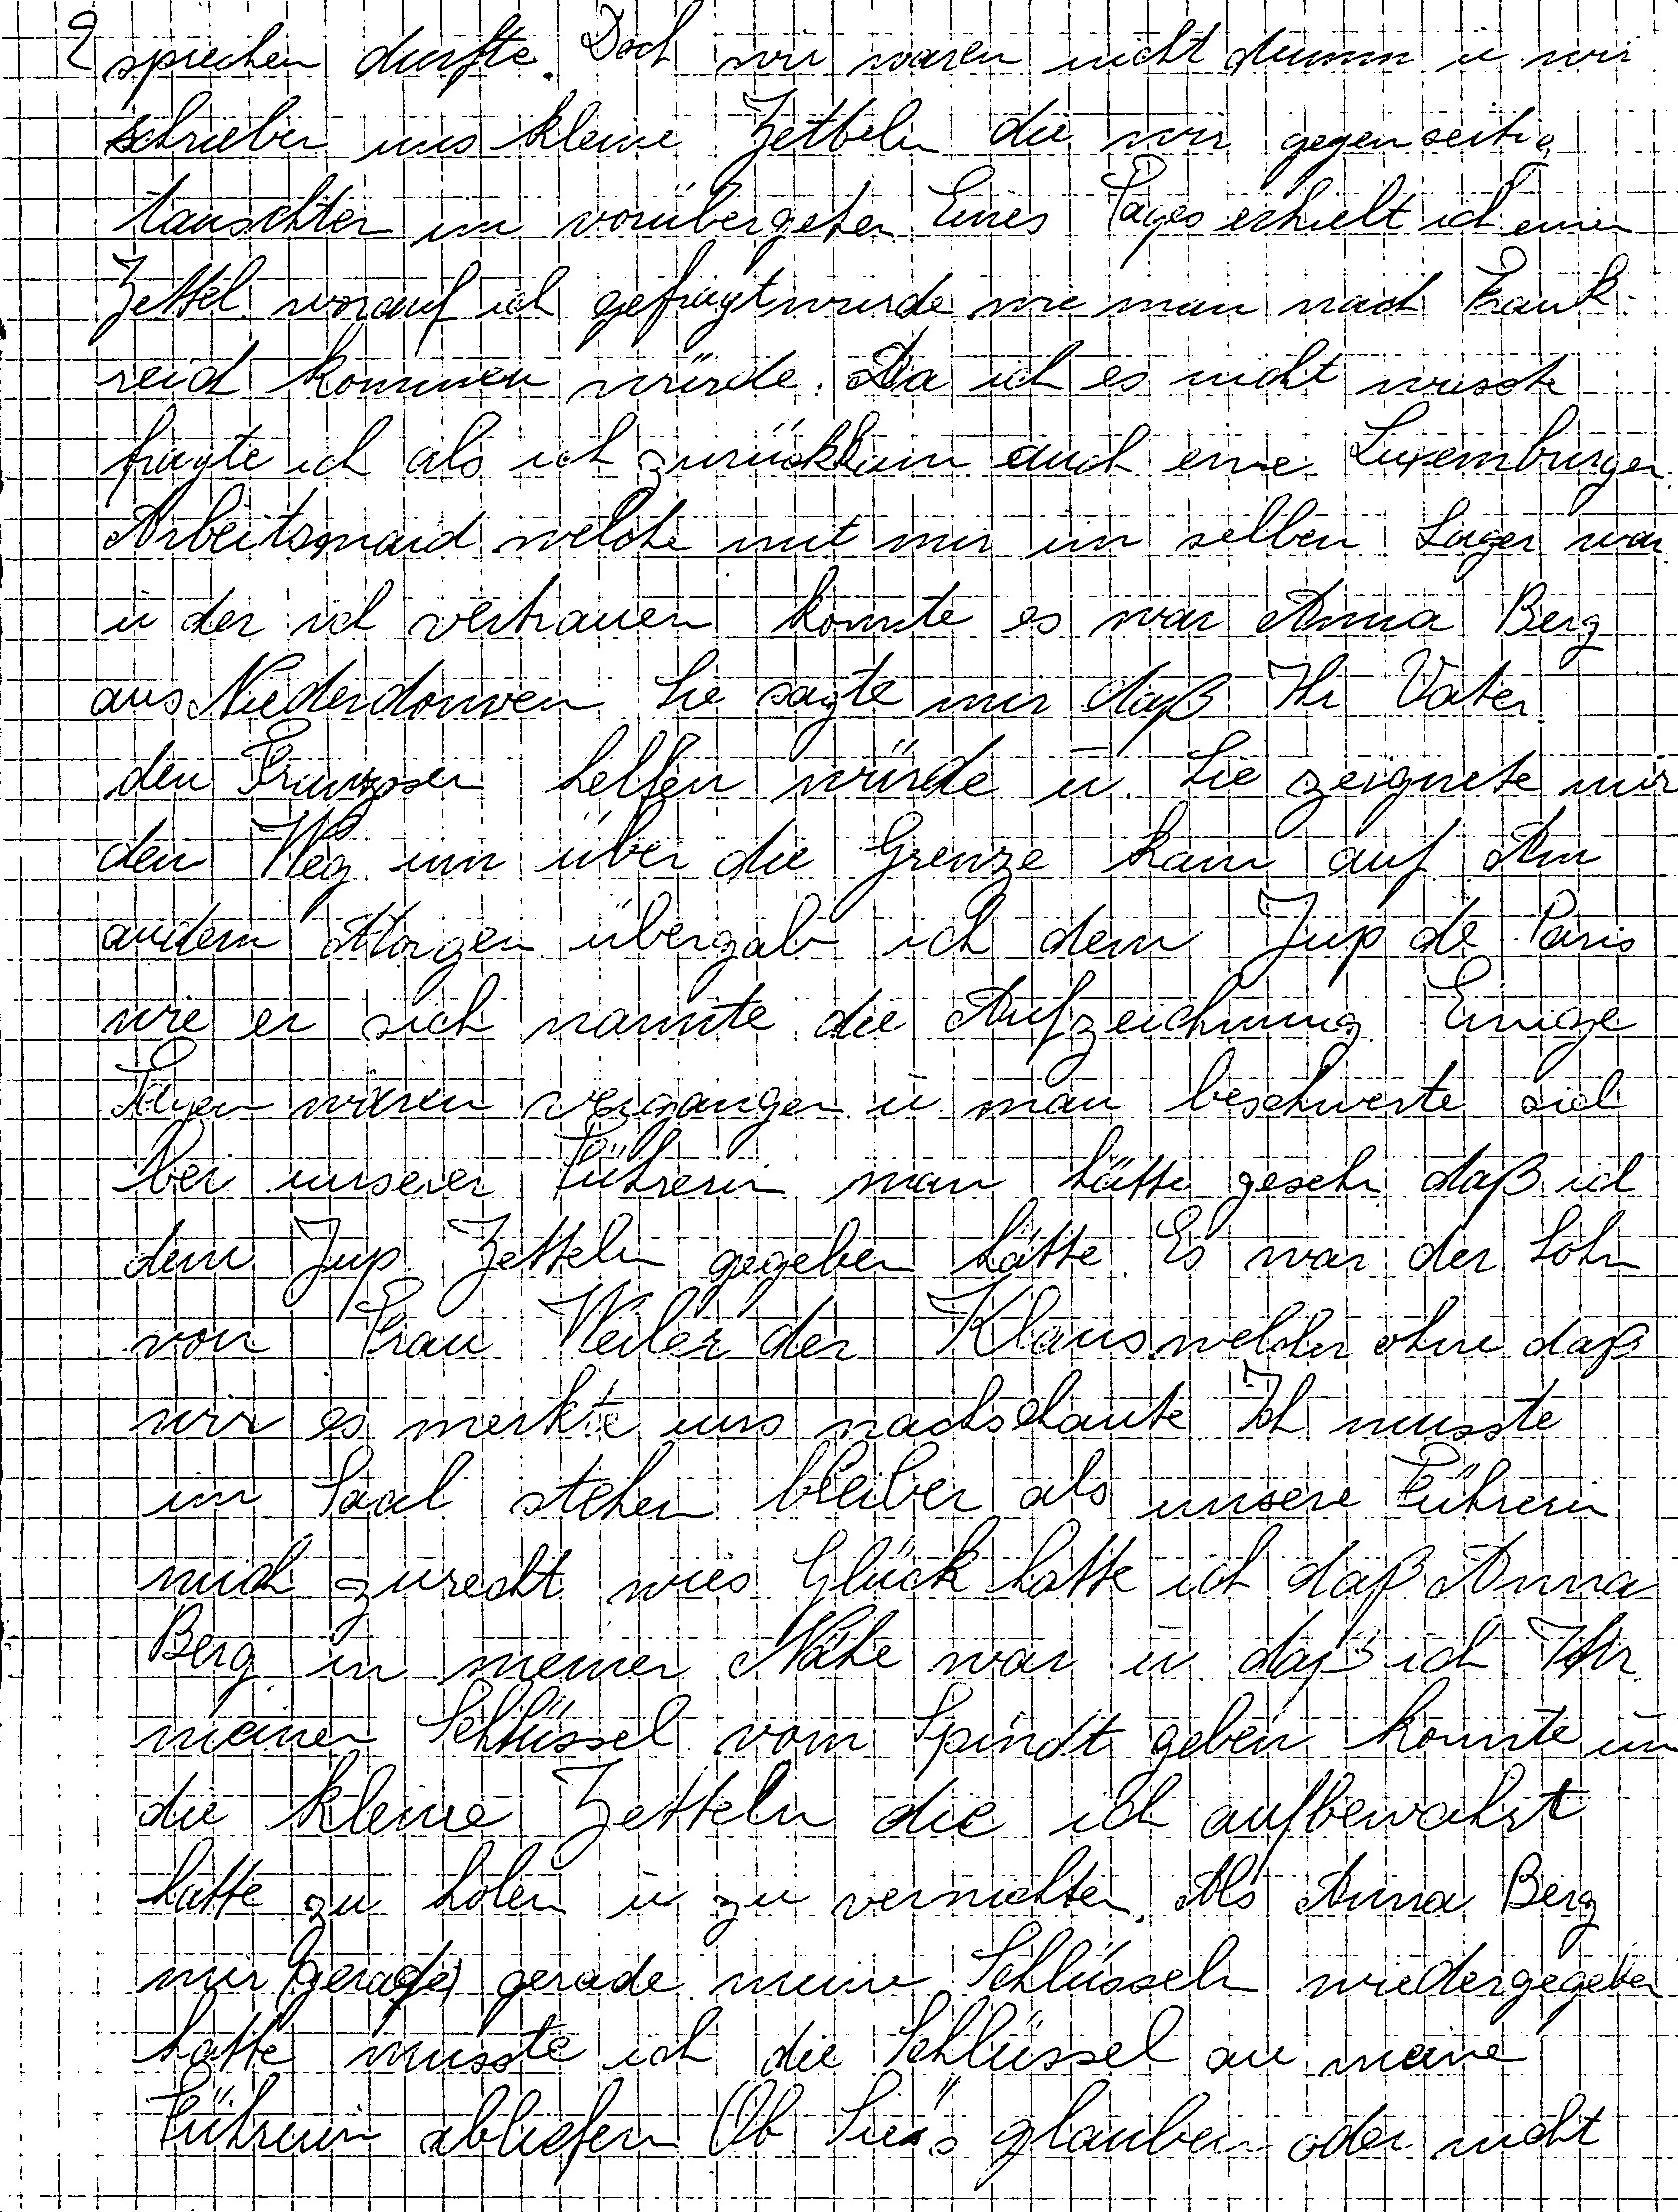 2 sprechen durfte. Doch wir waren nicht dumm ū wir
schrieben uns kleine Zetteln die wir gegenseitig
tauschten im vorübergehen Eines Tages erhielt ich einen
Zettel worauf ich gefragt wurde wie man nach Frank-
reich kommen würde. Da ich es nicht wusste
fragte ich als ich zurückkam auch eine Luxemburger
Arbeitsmaid welche mit mir im selben Lager war
ū der ich vertrauen konnte es war Anna Berg
aus Niederdonven Sie sagte mir daß Ihr Vater
den Franzosen helfen würde ū. Sie zeignete mir
den Weg inn über die Grenze kam auf Am
andern Morgen übergab ich dem Jup de Paris
wie er sich nannte die Aufzeichnung Einige
Tagen waren vergangen ū man beschwerte sich
bei unserer Führerin man hätte gesehn daß ich
dem Jup Zetteln gegeben hätte Es war der Sohn
von Frau Weiler der Klaus welcher ohne daß
wir es merkte uns nachschaute Ich musste
im Saal stehen bleiben als unsere Führerin
mich zurecht wies Glück hatte ich daß Anna
Berg in meiner Nähe war ū daß ich Ihr
meinen Schlüssel vom Spindt geben konnte um
die kleine Zetteln die ich aufbewahrt
hatte zu holen ū zu vernichten. Als Anna Berg
mir (gerade) gerade meine Schlüsseln wiedergegeben
hatte musste ich die Schlüssel an meine
Führerin abliefern Ob Sie's glauben oder nicht